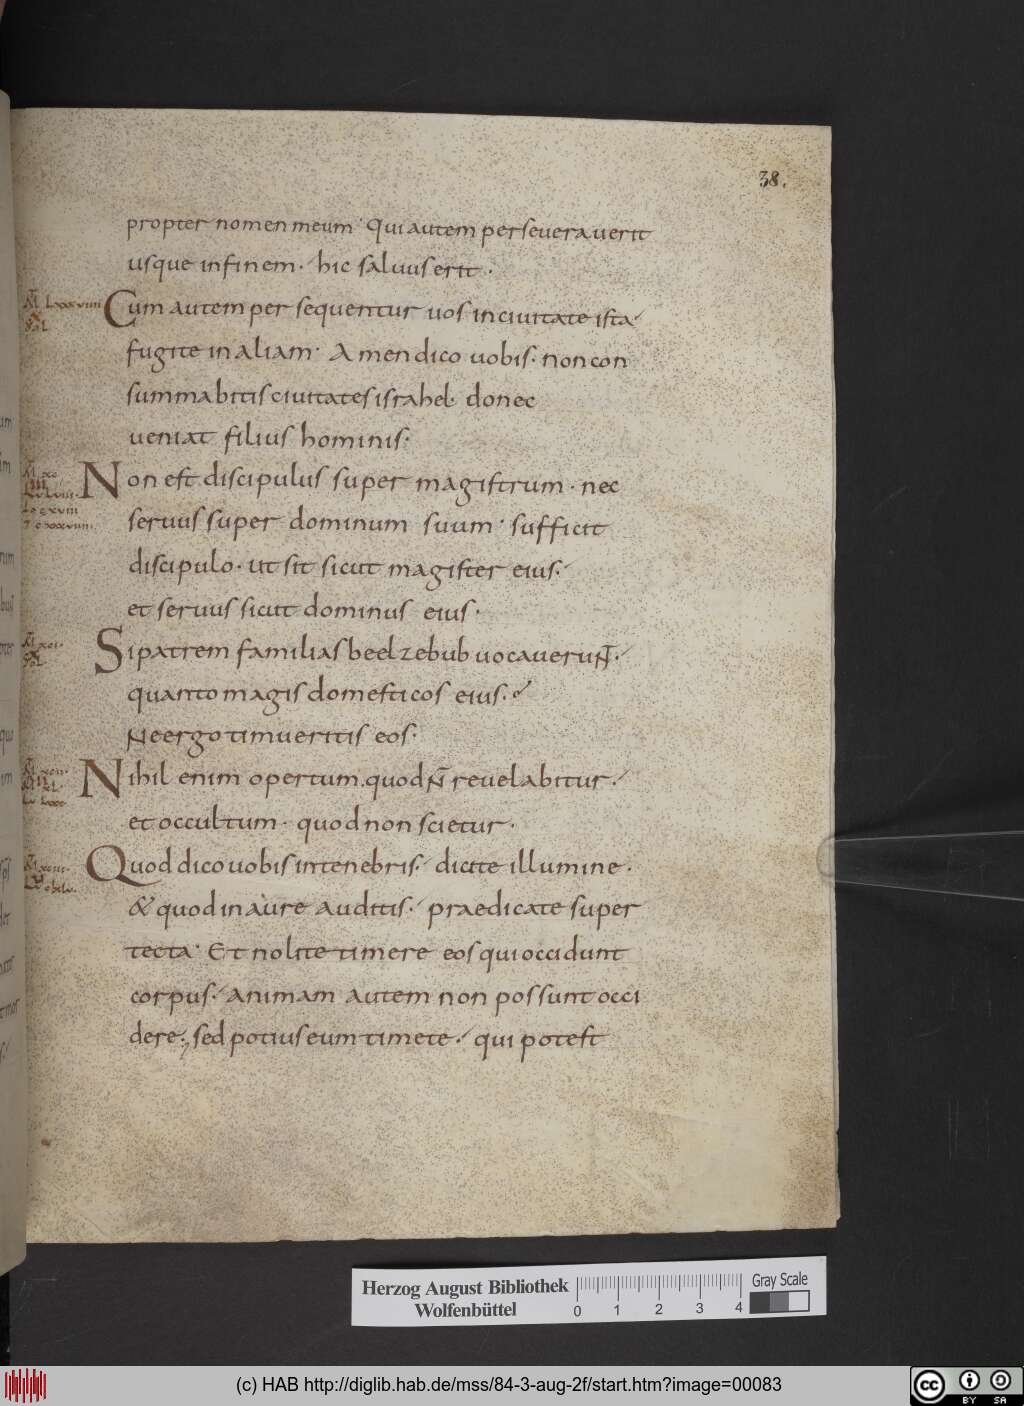 38.
propter nomen meum· Qui autem perseuerauerit
usque in finem· hic saluus erit·
Cum autem persequentur uos in ciuitate ista
fugite in aliam· Amen dico uobis· non con
summabitis ciuitates israhel· donec
ueniat filius hominis·
Non est discipulus super magistrum· nec
seruus super dominum suum· sufficit
discipulo· ut sit sicut magister eius·
et seruus sicut dominus eius·
Si patrem familias beelzebub uocauerunt·
quanto magis domesticos eius·
Ne ergo timueritis eos·
Nihil enim opertum. quod n̄ reuelabitur·
et occultum· quod non scietur·
Quod dico uobis in tenebris· dicite in lumine·
& quod in aure auditis· praedicate super
tecta· Et nolite timere eos qui occidunt
corpus· animam autem non possunt occi
dere· sed potius eum timete· qui potest
Herzog August Bibliothek
Wolfenbüttel
0 1 2 3 4
Gray Scale
(c) HAB http://diglib.hab.de/mss/84-3-aug-2f/start.htm?image=00083
cc BY SA